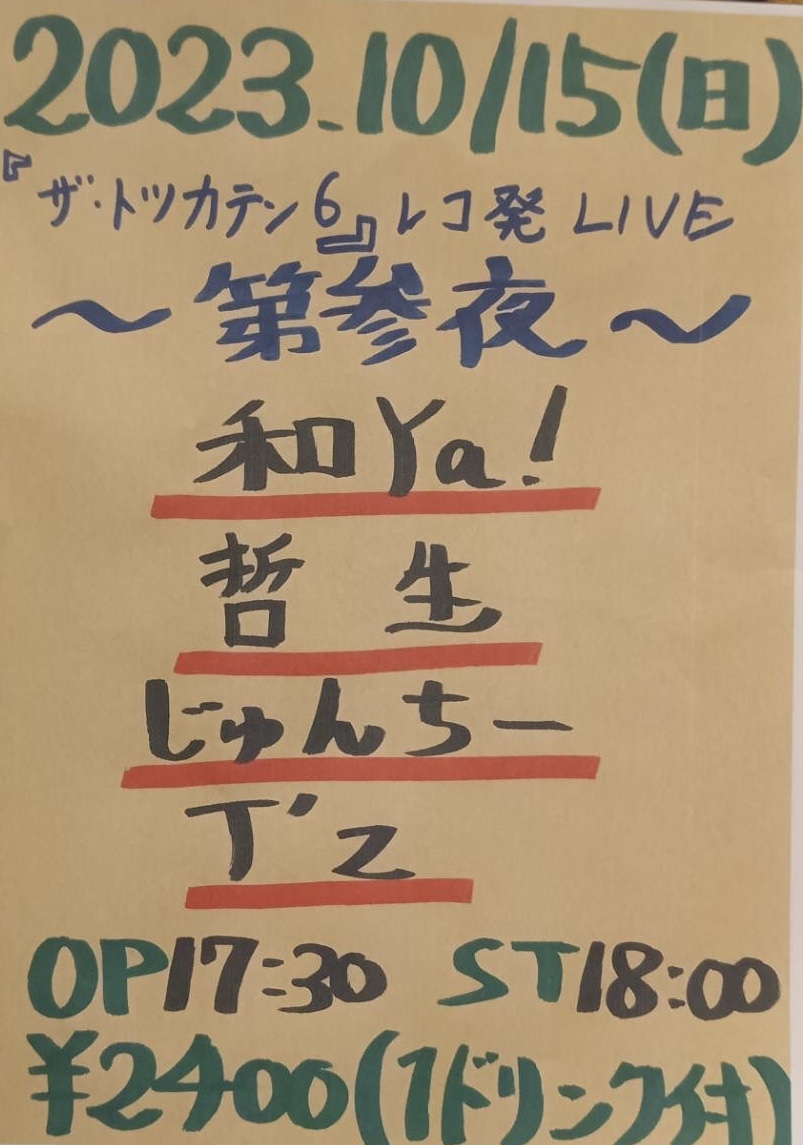 2023.10/15(日)
『ザ・トツカテン6』レコ発 LIVE
〜第参夜〜
和Ya!
哲生
じゅんちー
T'z
OP17:30 ST18:00
¥2400(1ドリンク付)